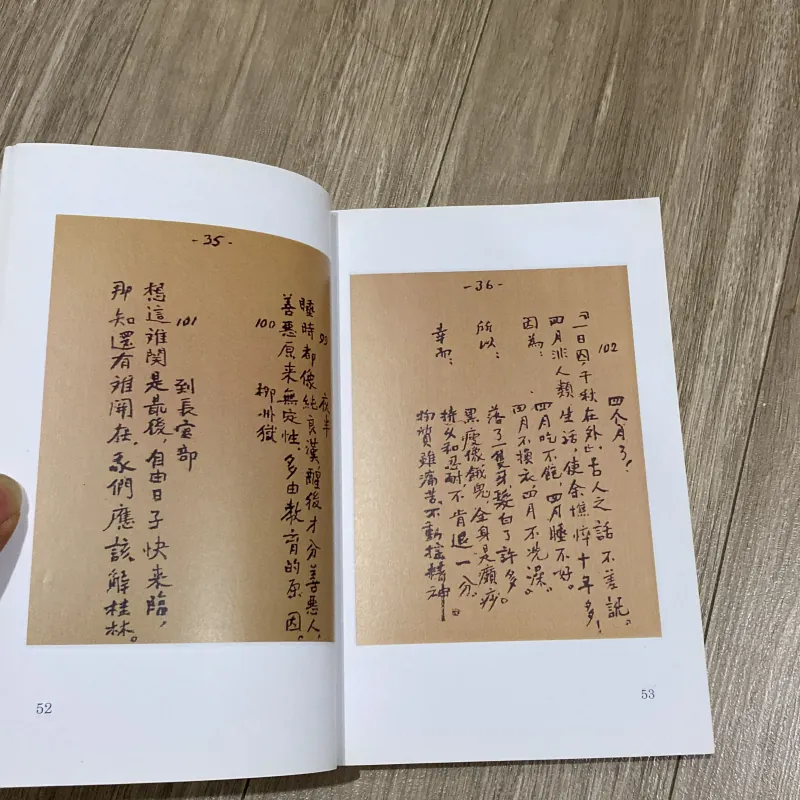 - 35 -
99 夜半
睡時都像純良漢,醒後才分善惡人,
善惡原來無定性,多由教育的原因。
100 柳州獄
101 到長官部
想這难関是最後,自由日子快来臨,
那知還有难関在,我們應該解桂林。
52
- 36 -
102 四个月了!
「一日囚千秋在外」,古人之話不差訛。
四月非人類生活,使余憔悴十年多!
因為:四月吃不飽,四月睡不好。
四月不換衣,四月不洗澡。
所以:落了一隻牙,髮白了許多。
黑瘦像餓鬼,全身是癩痧。
幸而:持久和忍耐,不肯退一分。
物質雖痛苦,不動搖精神。
53